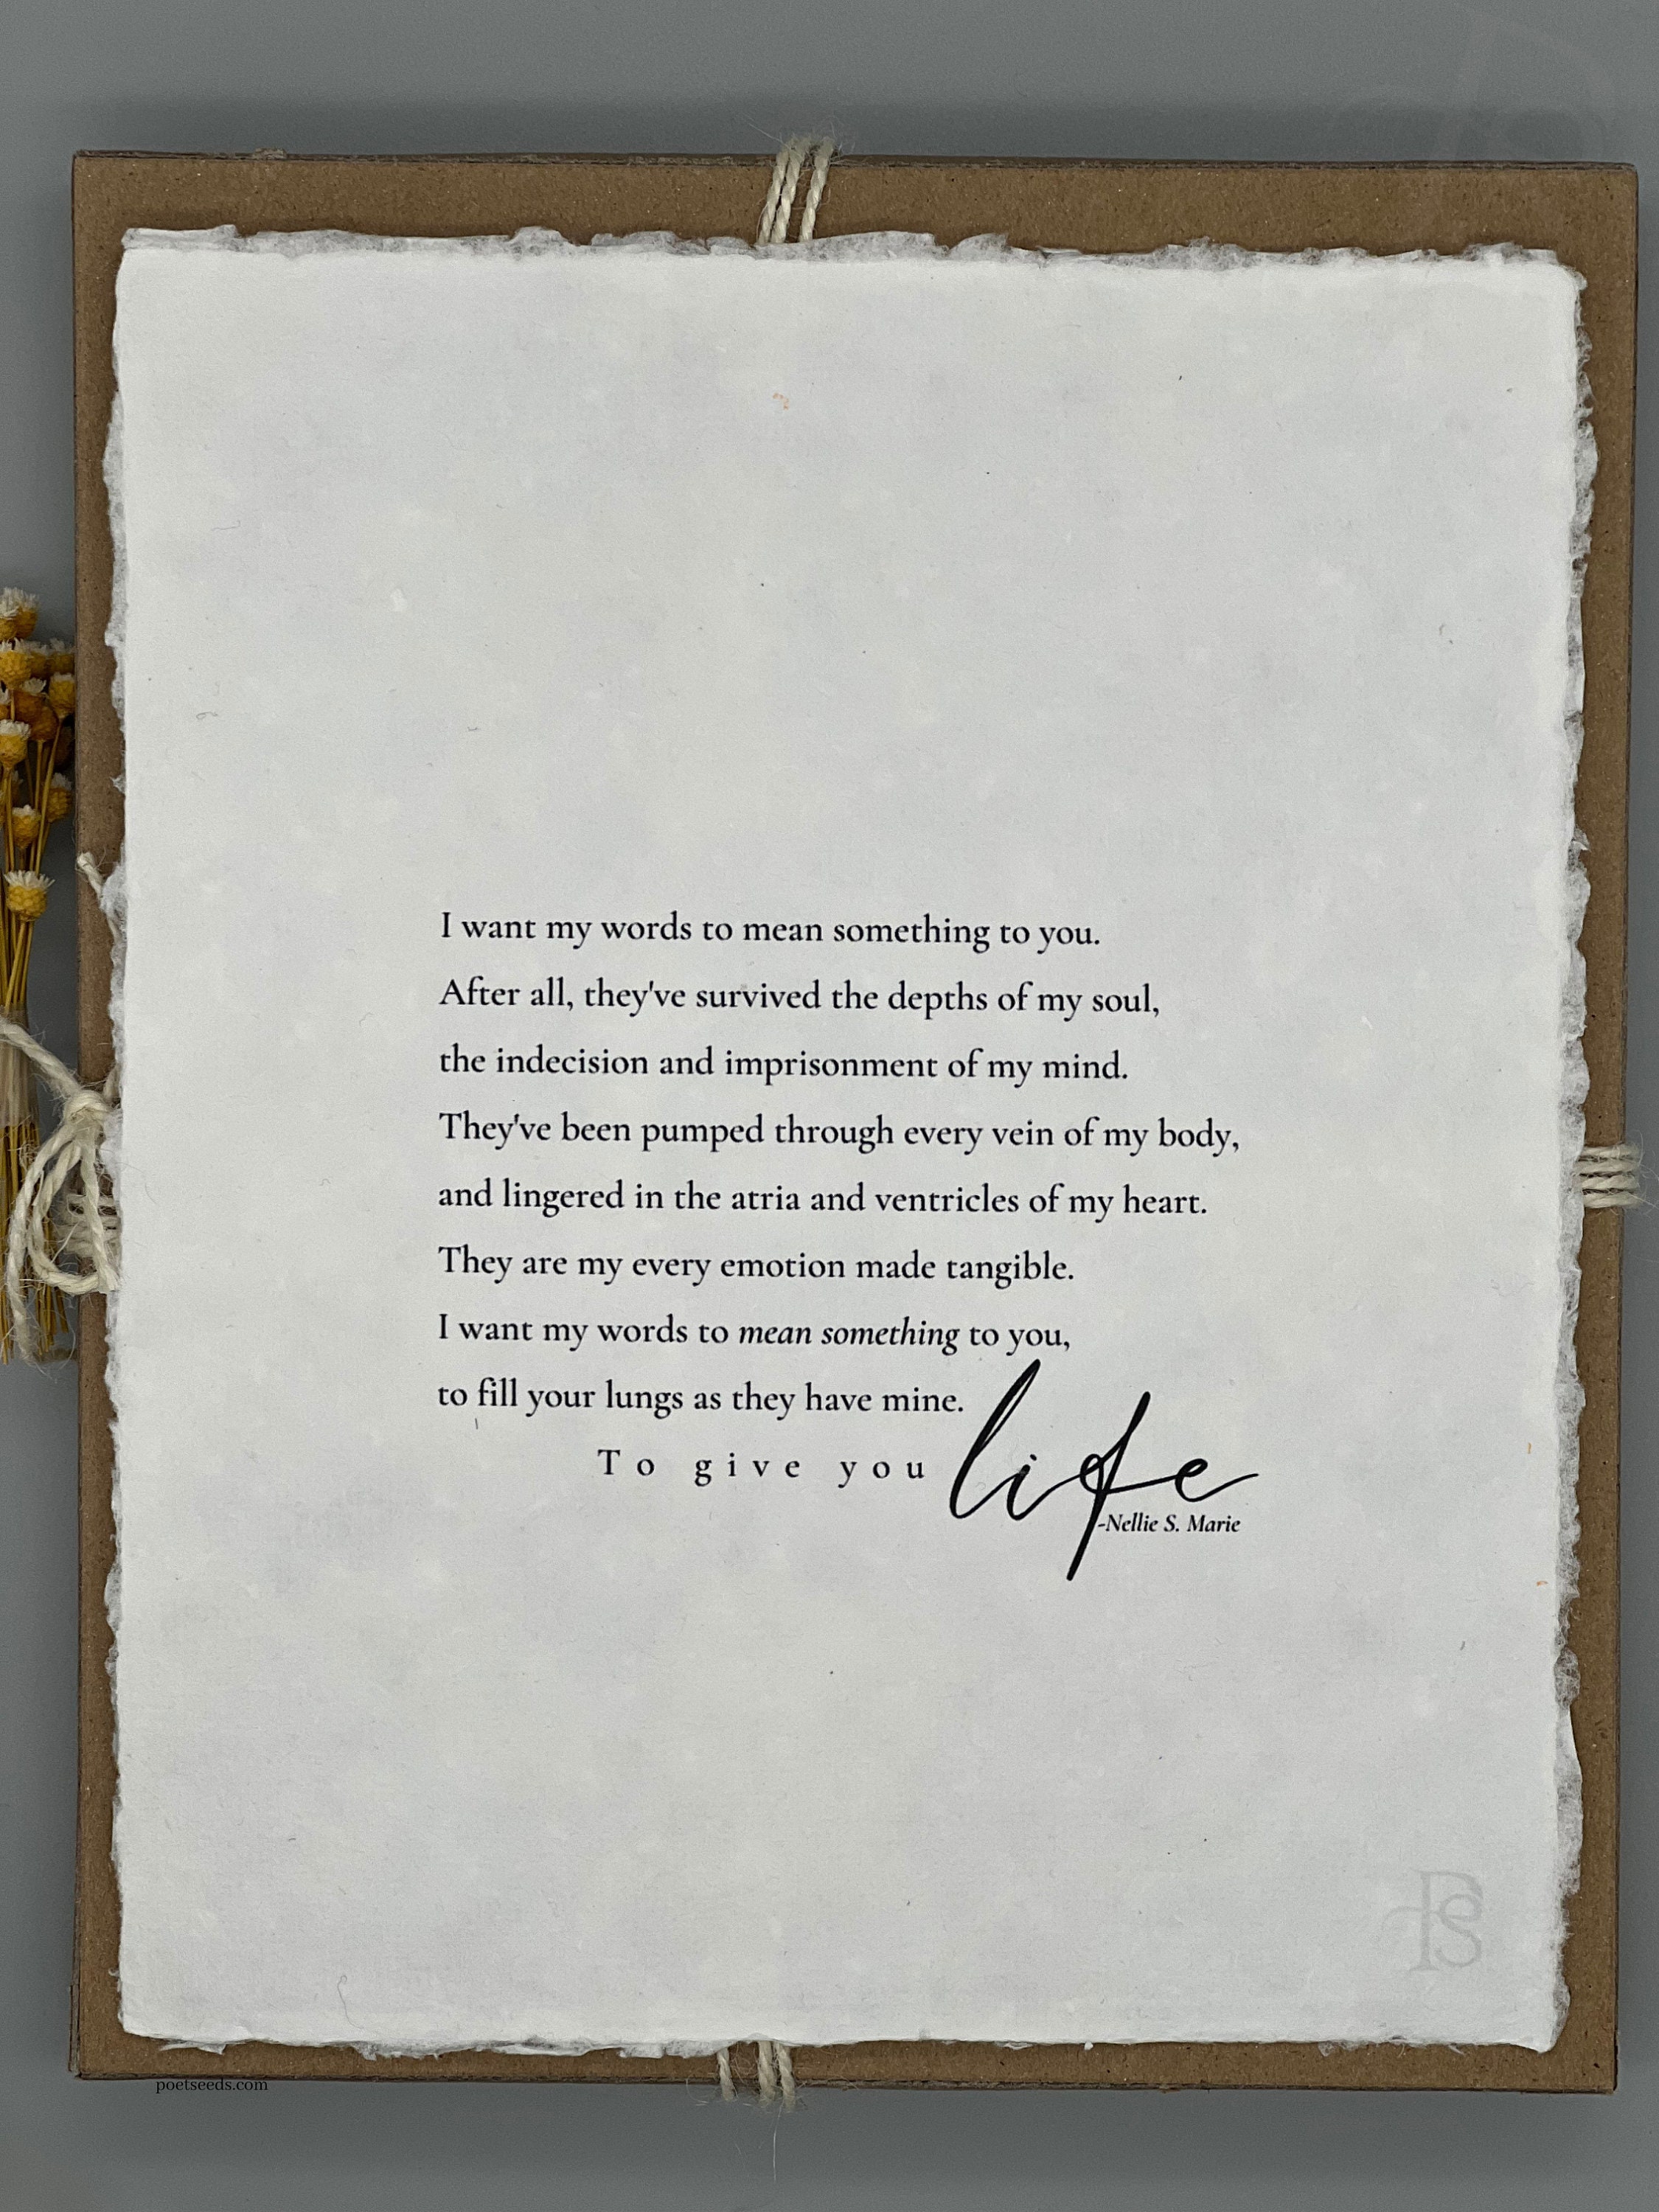 I want my words to mean something to you.
After all, they've survived the depths of my soul,
the indecision and imprisonment of my mind.
They've been pumped through every vein of my body,
and lingered in the atria and ventricles of my heart.
They are my every emotion made tangible.
I want my words to mean something to you,
to fill your lungs as they have mine.
To give you life
-Nellie S. Marie
PS
poetseeds.com